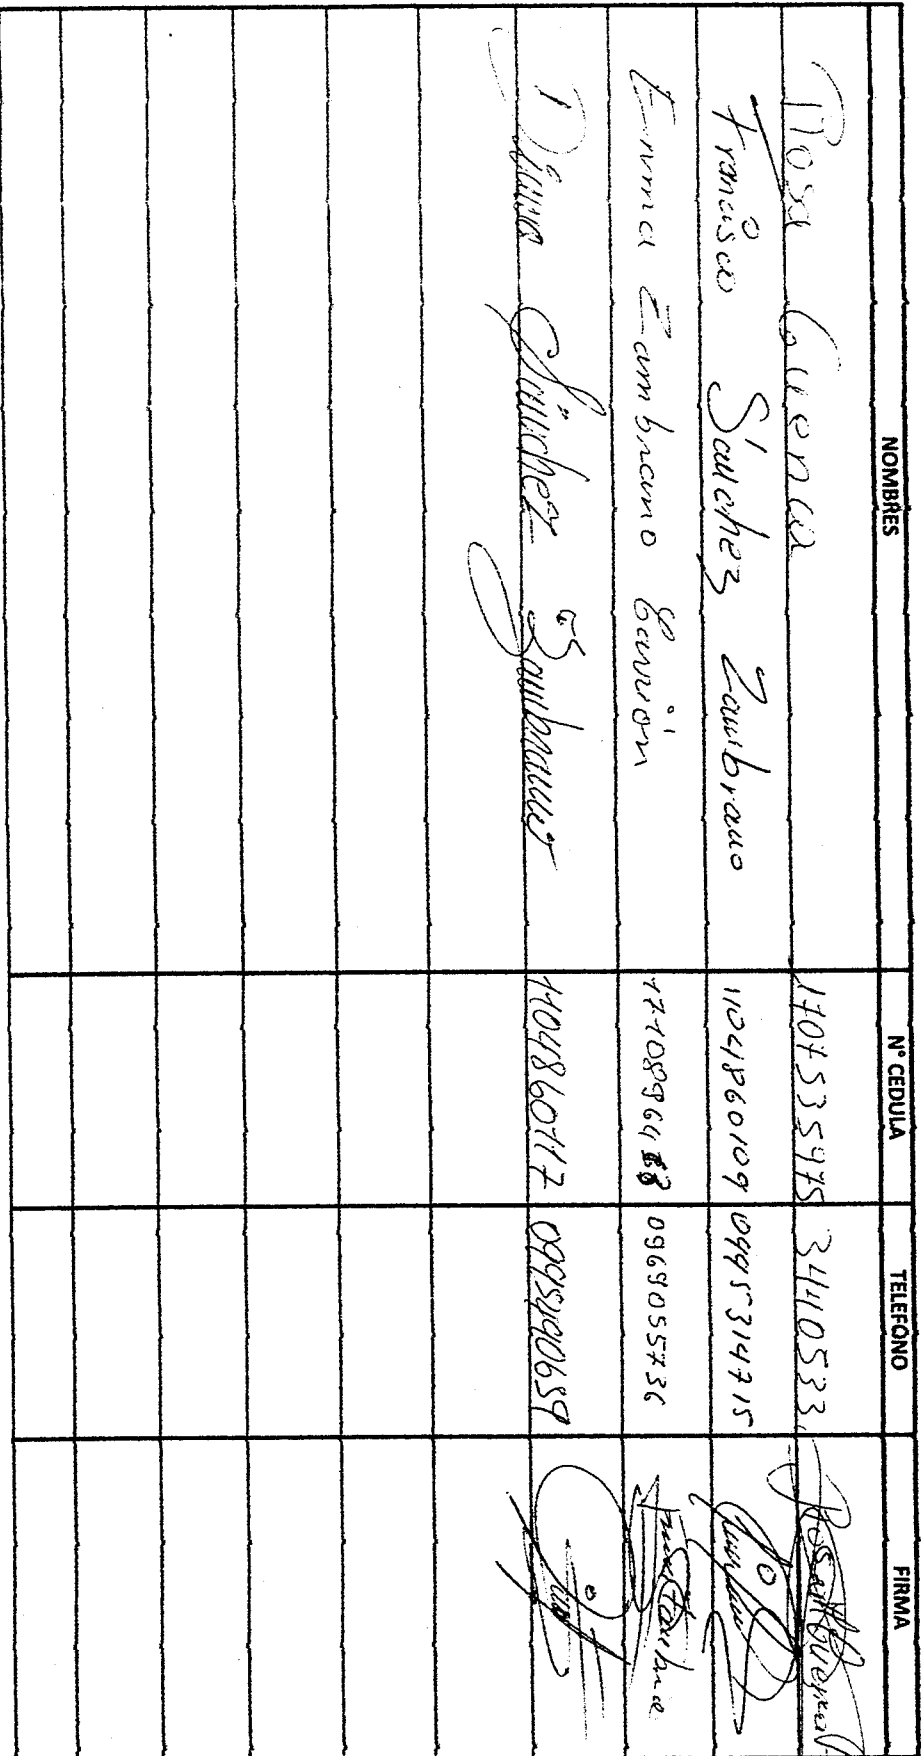 NOMBRES N° CEDULA TELEFONO FIRMA
Rosa Cuenca 1707535975 3440533
Francisco Sánchez Zambrano 1104860109 0995314715
Emma Zambrano Carrión 0969055736
Diana Sánchez Zambrano 1104860117 0995490659